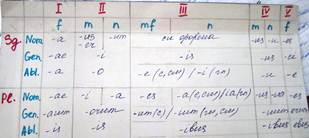 I II III IV V
f m n mf n m n f
Sg Nom. -a -us -er -um см. форma -us -u -es
Gen. -ae -i -is -us -ei
Abl. -a -o -e (с, см) / -i (гл) -u -e
Pl. Nom. -ae -i -a -es -a (с, см) / ia (гл) -us -ua -es
Gen. -arum -orum -um (с) / -ium (гл, см) -uum -erum
Abl. -is -is -ibus -ibus -ebus